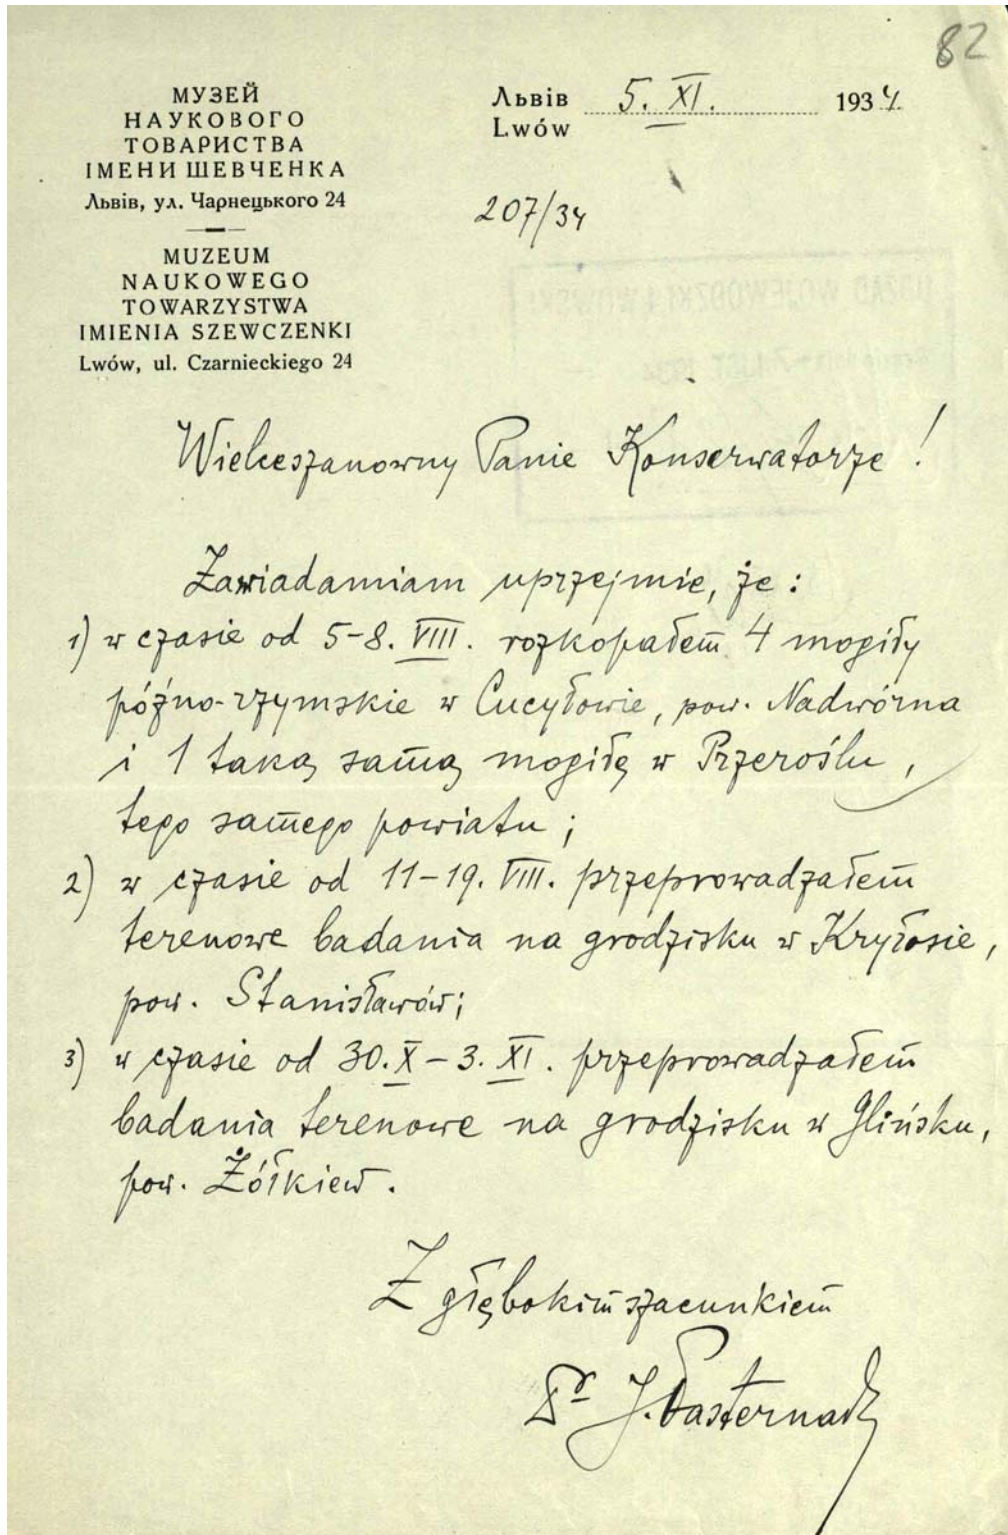 82
МУЗЕЙ
НАУКОВОГО
ТОВАРИСТВА
ІМЕНИ ШЕВЧЕНКА
Львів, ул. Чарнецького 24
MUZEUM
NAUKOWEGO
TOWARZYSTWA
IMIENIA SZEWCZENKI
Lwów, ul. Czarnieckiego 24
Львів 5. XI. 1934
Lwów
207/34
Wielceszanowny Panie Konserwatorze!
Zawiadamiam uprzejmie, że:
1) w czasie od 5-8. VIII. rozkopałem 4 mogiły
późno-rzymskie w Cucyłowie, pow. Nadwórna
i 1 taką samą mogiłę w Przeroślu,
tego samego powiatu;
2) w czasie od 11-19. VIII. przeprowadzałem
terenowe badania na grodzisku w Kryłosie,
pow. Stanisławów;
3) w czasie od 30. X - 3. XI. przeprowadzałem
badania terenowe na grodzisku w Glińsku,
pow. Żółkiew.
Z głębokim szacunkiem
Dr J. Pasternak